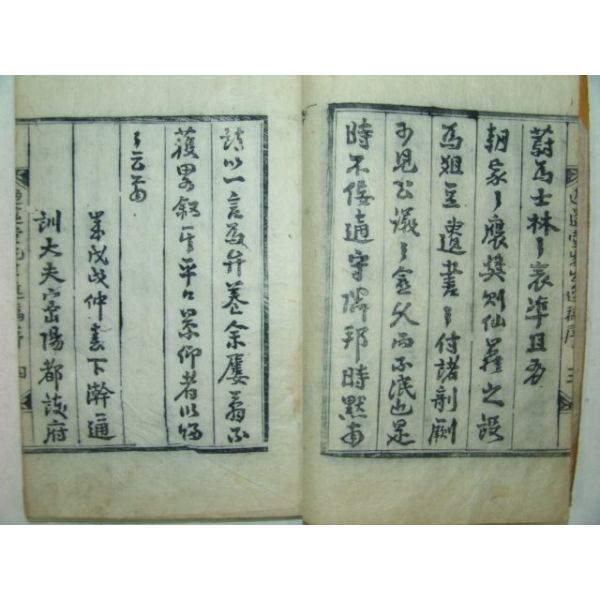 蔚為士林之表準且為
朝家之褒奬則仙蘿之設
為俎豆遺書之付諸剞劂
可見公議之愈久而不泯也是
時不侫適守隣邦時默甫
請以一言為弁卷余屢不
獲畧叙平日景仰者以
之云爾
戊戌仲春下澣通
訓大夫密陽都護府